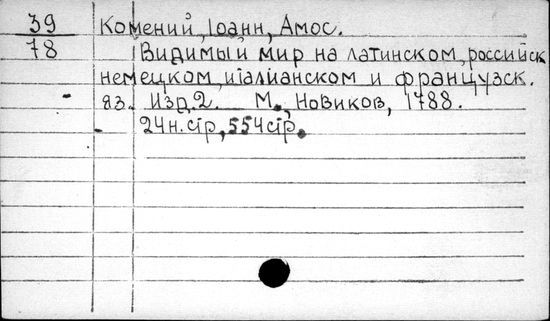 39 Комений, Iоанн, Амос.
78 Видимый мир на латинском, российск
немецком, италианском и французск.
яз. Изд. 2. М., Новиков, 1788.
24н.стр., 554стр.